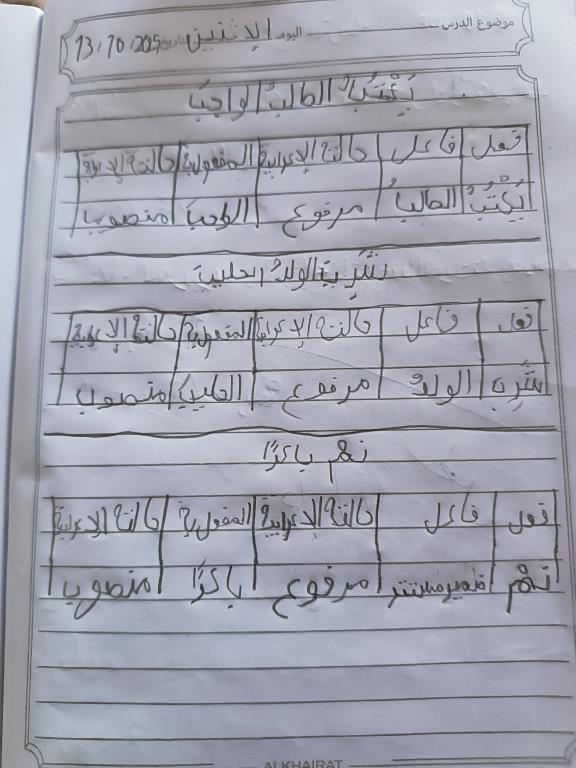 موضوع الدرس اليوم الإثنين التاريخ 13/10/2025
يَكْتُبُ الطالبُ الواجبَ
فعل فاعل حالته الإعرابية المفعول به حالته الإعرابية
يَكْتُبُ الطالبُ مرفوع الواجبَ منصوب
شَرِبَ الولدُ الحليبَ
فعل فاعل حالته الإعرابية المفعول به حالته الإعرابية
شَرِبَ الولدُ مرفوع الحليبَ منصوب
نم باكرًا
فعل فاعل حالته الإعرابية المفعول به حالته الإعرابية
نمْ ضمير مستتر مرفوع باكرًا منصوب
ALKHAIRAT